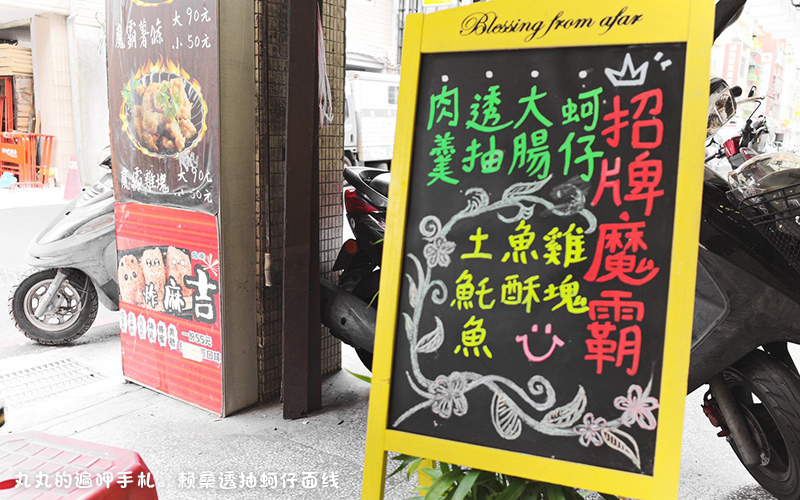 Blessing from afar
招牌魔霸
蚵仔
大腸
透抽
肉羹
雞塊
魚酥
土魠魚
魔霸薯條
大90元
小50元
魔霸雞塊
大90元
小50元
炸麻吉
一份55元
丸丸的遍呷手札：赖桑透抽蚵仔面线